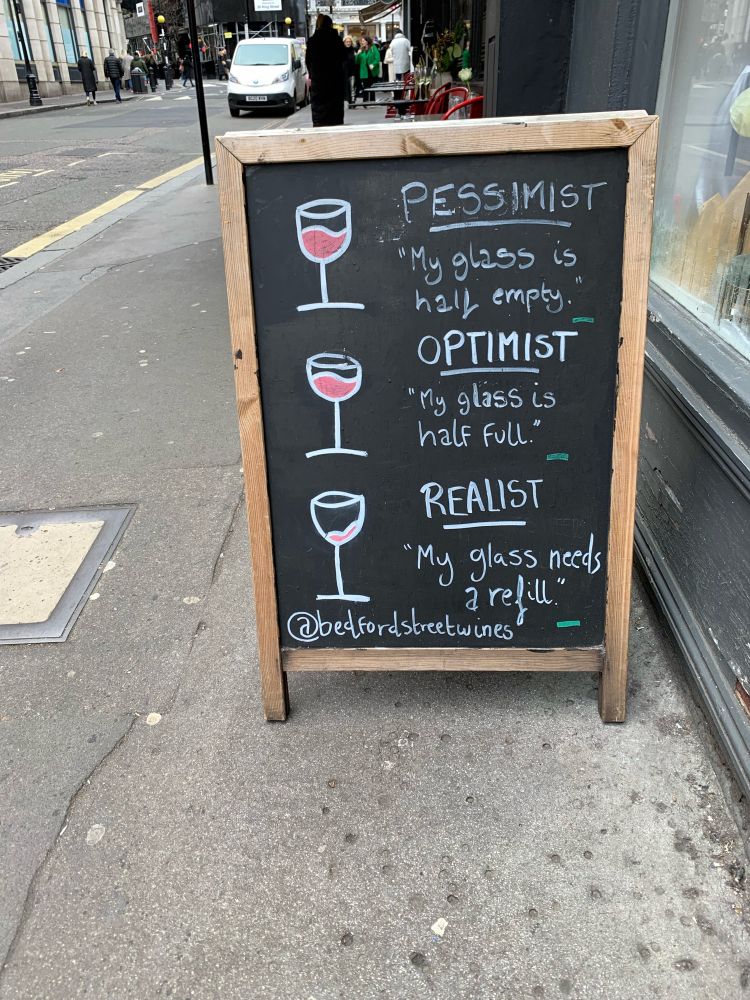 PESSIMIST
"My glass is
half empty."
OPTIMIST
"My glass is
half full."
REALIST
"My glass needs
a refill."
@bedfordstreetwines